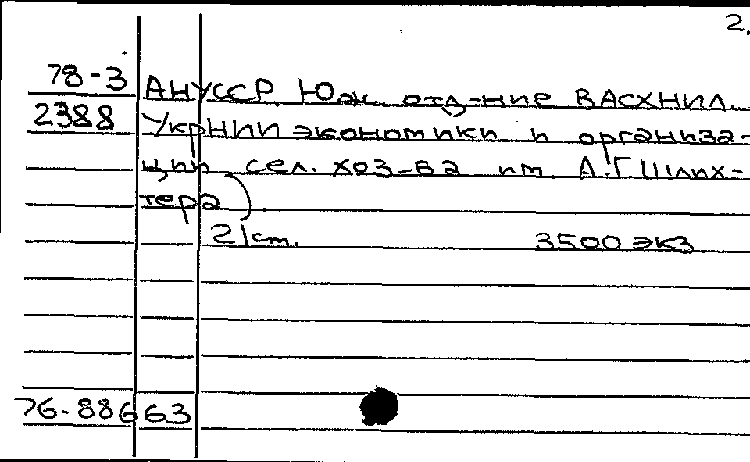 2.
78-3 АНУССР Юж. отд-ние ВАСХНИЛ.
2388 УкрНИИ экономики и организа-
ции сел. хоз-ва им. А.Г Шлих-
тера)
2|ст. 3500 экз
76-88663